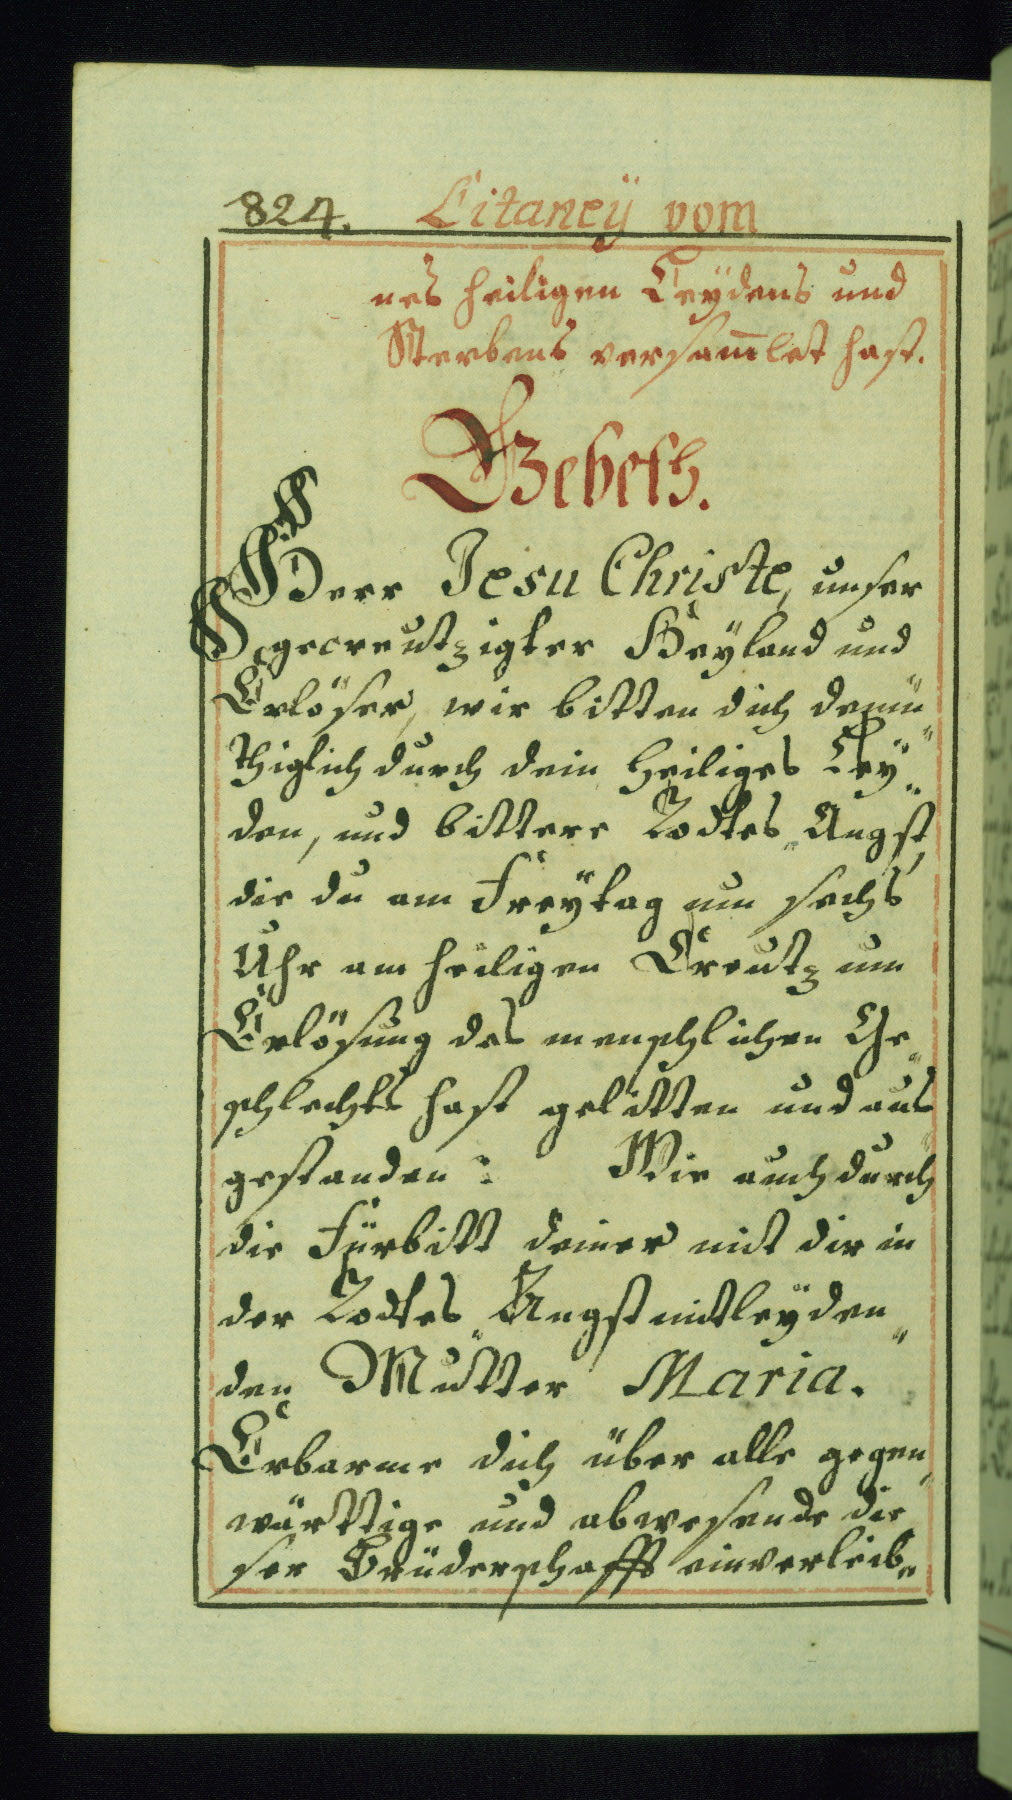 824. Litaney vom
nes heiligen Leÿdens und
Sterbens versam̄let hast.
Gebeth.
Herr Jesu Christe, unser
gecreutzigter Heyland und
Erlöser, wir bitten dich demü„
thiglich durch dein heiliges Leÿ„
den, und bittere Todtes„Angst,
die du am Freÿtag um sechs
Uhr am heiligen Creutz um
Erlösung des menschlichen Ge„
schlechts hast gelitten und aus„
gestanden: Wie auch durch
die Fürbitt deiner mit dir in
der Todtes„Angst mitleÿden„
den Mutter Maria.
Erbarme dich über alle gegen„
wärttige und abwesende die„
ser Bruderschafft einverleib„